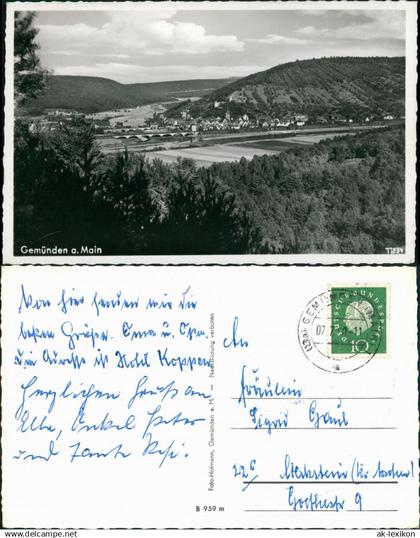 www.ak-lexikon.de
Gemünden a. Main
Von hier senden wir die
besten Grüße. Oma u. Opa.
die Adresse ist Hotel Koppen
Herzlichen Gruß an
Elke, Onkel Peter
und Tante
Foto-Hofmann, Gemünden a. M. - Nachbildung verboten
B 959 m
DEUTSCHE BUNDESPOST
10
(13a) GEMÜNDEN
07
a
An
Fräulein
Sigrid
22c
Goethestr 9
www.ak-lexikon.de